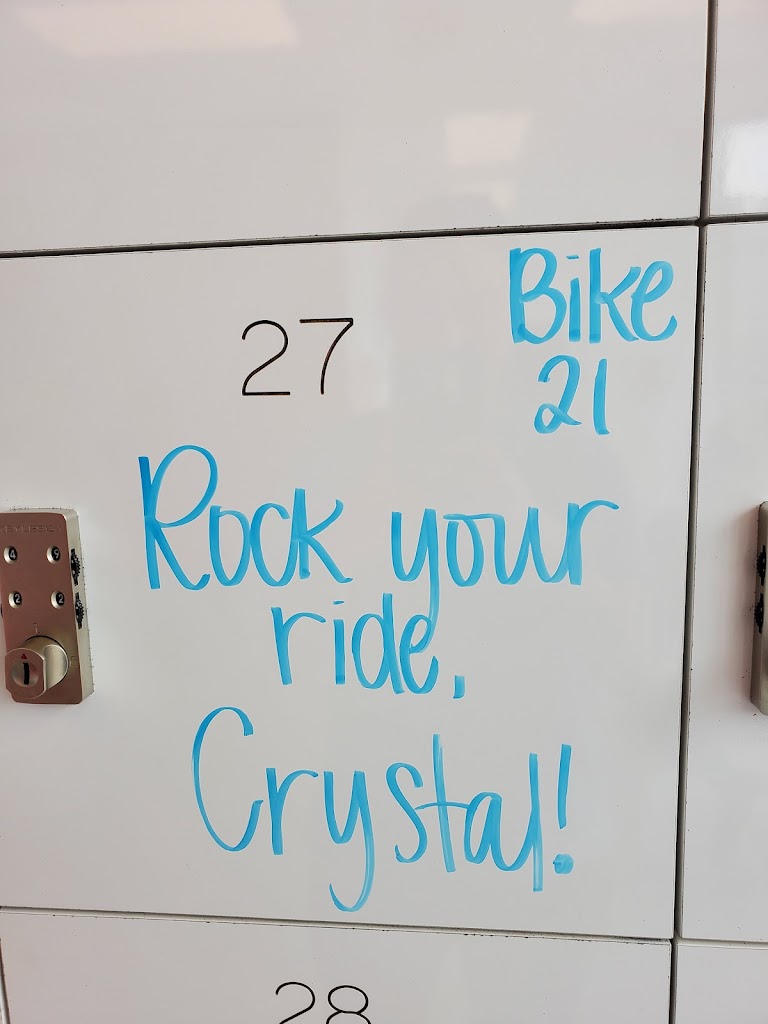 27
Bike
21
Rock your
ride,
Crystal!
28